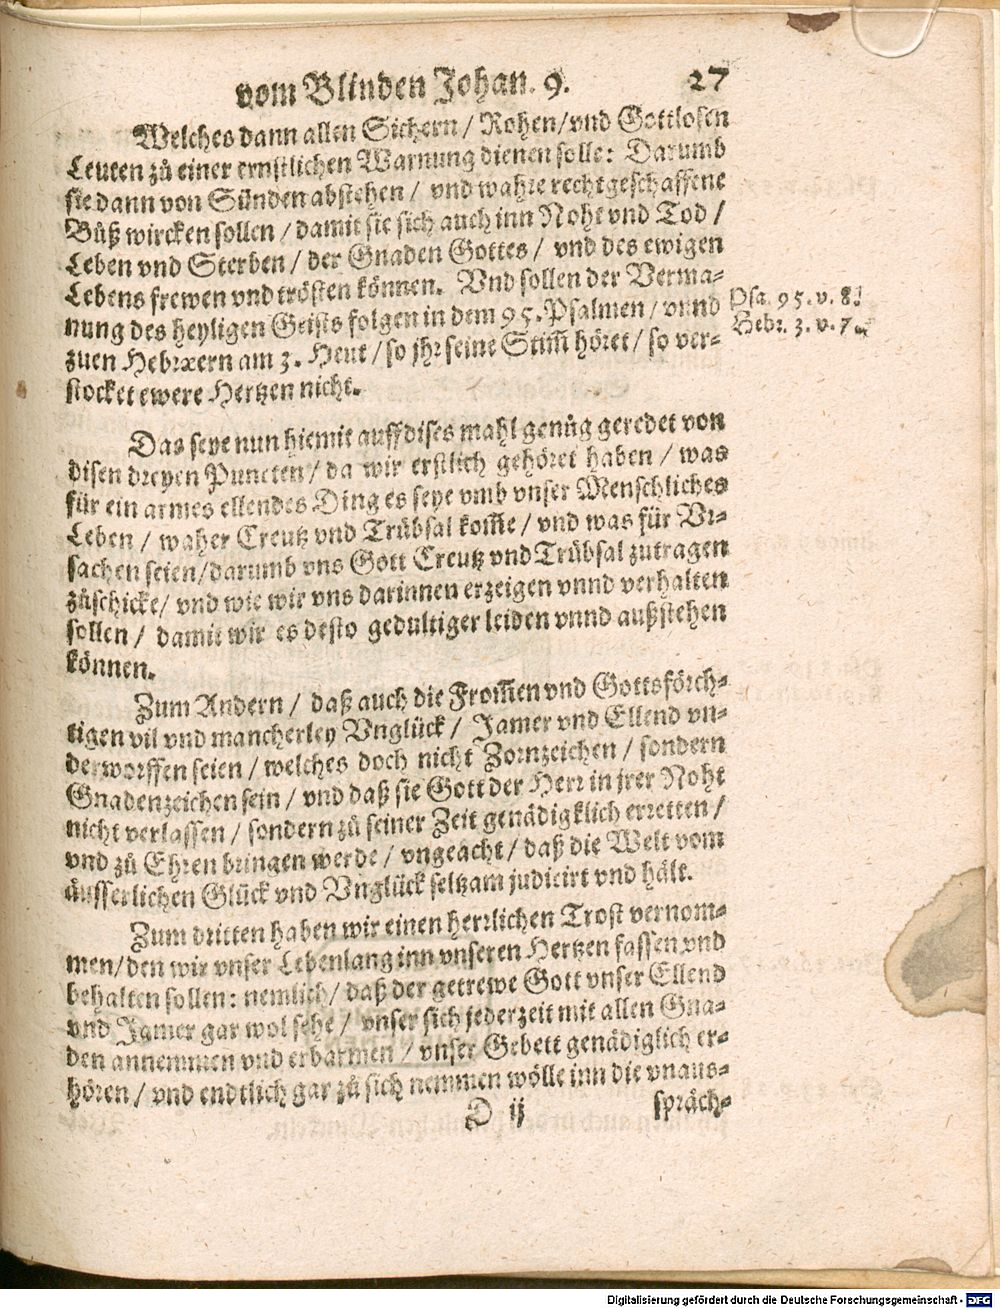 vom Blinden Johan. 9. 27
Welches dann allen Sichern / Rohen / vnd Gottlosen
Leuten zů einer ernstlichen Warnung dienen solle: Darumb
sie dann von Sünden abstehen / vnd wahre rechtgeschaffene
Bůß wircken sollen / damit sie sich auch inn Noht vnd Tod /
Leben vnd Sterben / der Gnaden Gottes / vnd des ewigen
Lebens frewen vnd trösten können. Vnd sollen der Verma-
nung des heyligen Geists folgen in dem 95. Psalmen / vnnd
Psa. 95. v. 8.
zuen Hebræern am 3. Heut / so jhr seine Stim̃ höret / so ver-
Hebr. 3. v. 7.
stocket ewere Hertzen nicht.
Das seye nun hiemit auff dises mahl genůg geredet von
disen dreyen Puncten / da wir erstlich gehöret haben / was
für ein armes ellendes Ding es seye vmb vnser Menschliches
Leben / waher Creutz vnd Trübsal kom̃e / vnd was für Vr-
sachen seien / darumb vns Gott Creutz vnd Trübsal zutragen
zůschicke / vnd wie wir vns darinnen erzeigen vnnd verhalten
sollen / damit wir es desto gedultiger leiden vnnd außstehen
können.
Zum Andern / daß auch die From̃en vnd Gottsförch-
tigen vil vnd mancherley Vnglück / Jamer vnd Ellend vn-
derworffen seien / welches doch nicht Zornzeichen / sondern
Gnadenzeichen sein / vnd daß sie Gott der Herr in jrer Noht
nicht verlassen / sondern zů seiner Zeit genädigklich erretten /
vnd zů Ehren bringen werde / vngeacht / daß die Welt vom
äusserlichen Glück vnd Vnglück seltzam judicirt vnd hält.
Zum dritten haben wir einen herrlichen Trost vernom-
men / den wir vnser Lebenlang inn vnseren Hertzen fassen vnd
behalten sollen: nemlich / daß der getrewe Gott vnser Ellend
vnd Jamer gar wol sehe / vnser sich jederzeit mit allen Gna-
den annemmen vnd erbarmen / vnser Gebett genädiglich er-
hören / vnd endtlich gar zů sich nemmen wölle inn die vnaus-
D ij spräch-
Digitalisierung gefördert durch die Deutsche Forschungsgemeinschaft - DFG